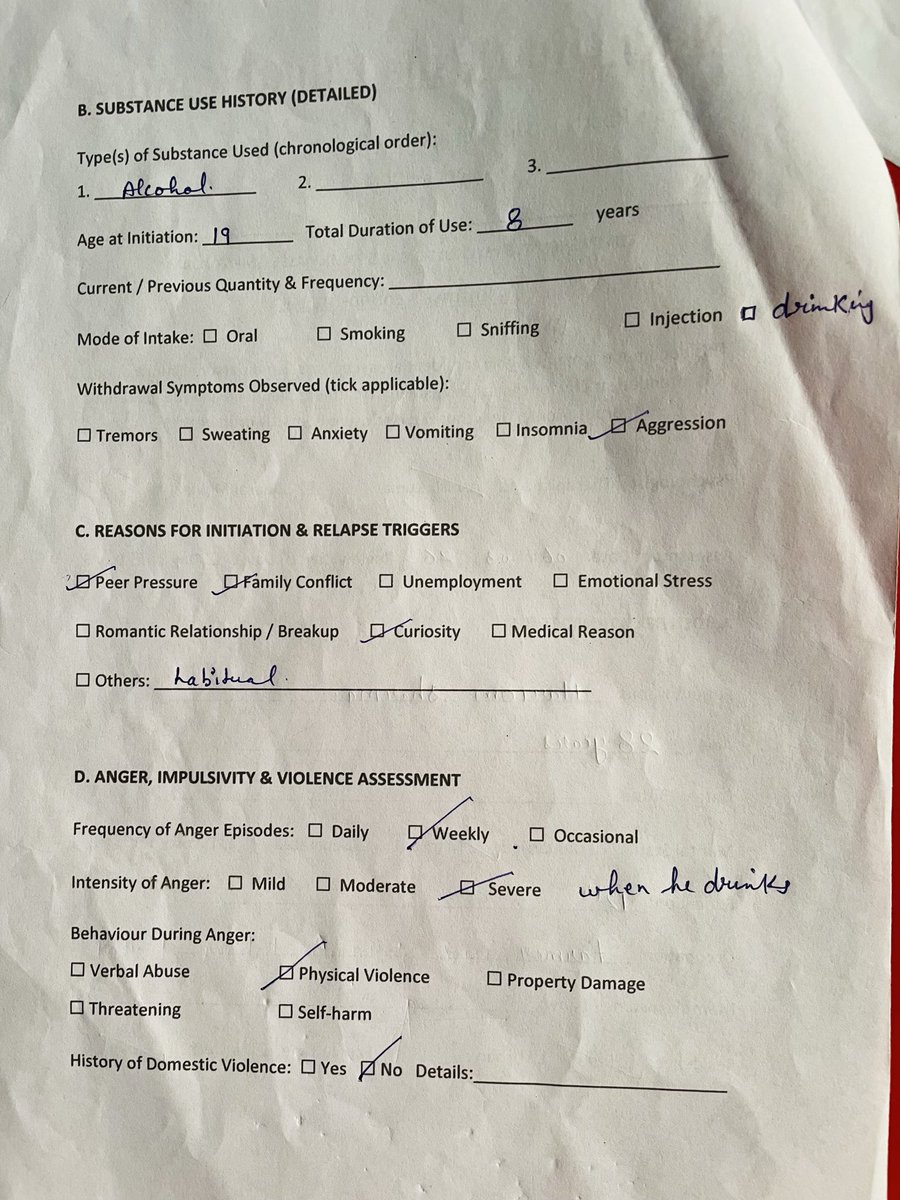 B. SUBSTANCE USE HISTORY (DETAILED)
Type(s) of Substance Used (chronological order):
1. Alcohol. 2. 3.
Age at Initiation: 19 Total Duration of Use: 8 years
Current / Previous Quantity & Frequency:
Mode of Intake: ☐ Oral ☐ Smoking ☐ Sniffing ☐ Injection ☐ drinking
Withdrawal Symptoms Observed (tick applicable):
☐ Tremors ☐ Sweating ☐ Anxiety ☐ Vomiting ☐ Insomnia ☑ Aggression
C. REASONS FOR INITIATION & RELAPSE TRIGGERS
☑ Peer Pressure ☑ Family Conflict ☐ Unemployment ☐ Emotional Stress
☐ Romantic Relationship / Breakup ☑ Curiosity ☐ Medical Reason
☐ Others: habitual.
D. ANGER, IMPULSIVITY & VIOLENCE ASSESSMENT
Frequency of Anger Episodes: ☐ Daily ☑ Weekly ☐ Occasional
Intensity of Anger: ☐ Mild ☐ Moderate ☑ Severe when he drinks
Behaviour During Anger:
☐ Verbal Abuse ☑ Physical Violence ☐ Property Damage
☐ Threatening ☐ Self-harm
History of Domestic Violence: ☐ Yes ☑ No Details: